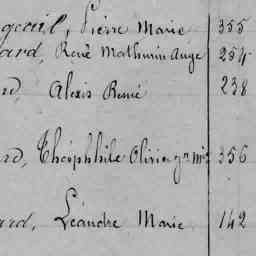 geuil, Pierre Marie 355
ard, René Mathurin Ange 254
rd, Alexis René 238
rd, Théophile Olivier 356
ard, Léandre Marie 142